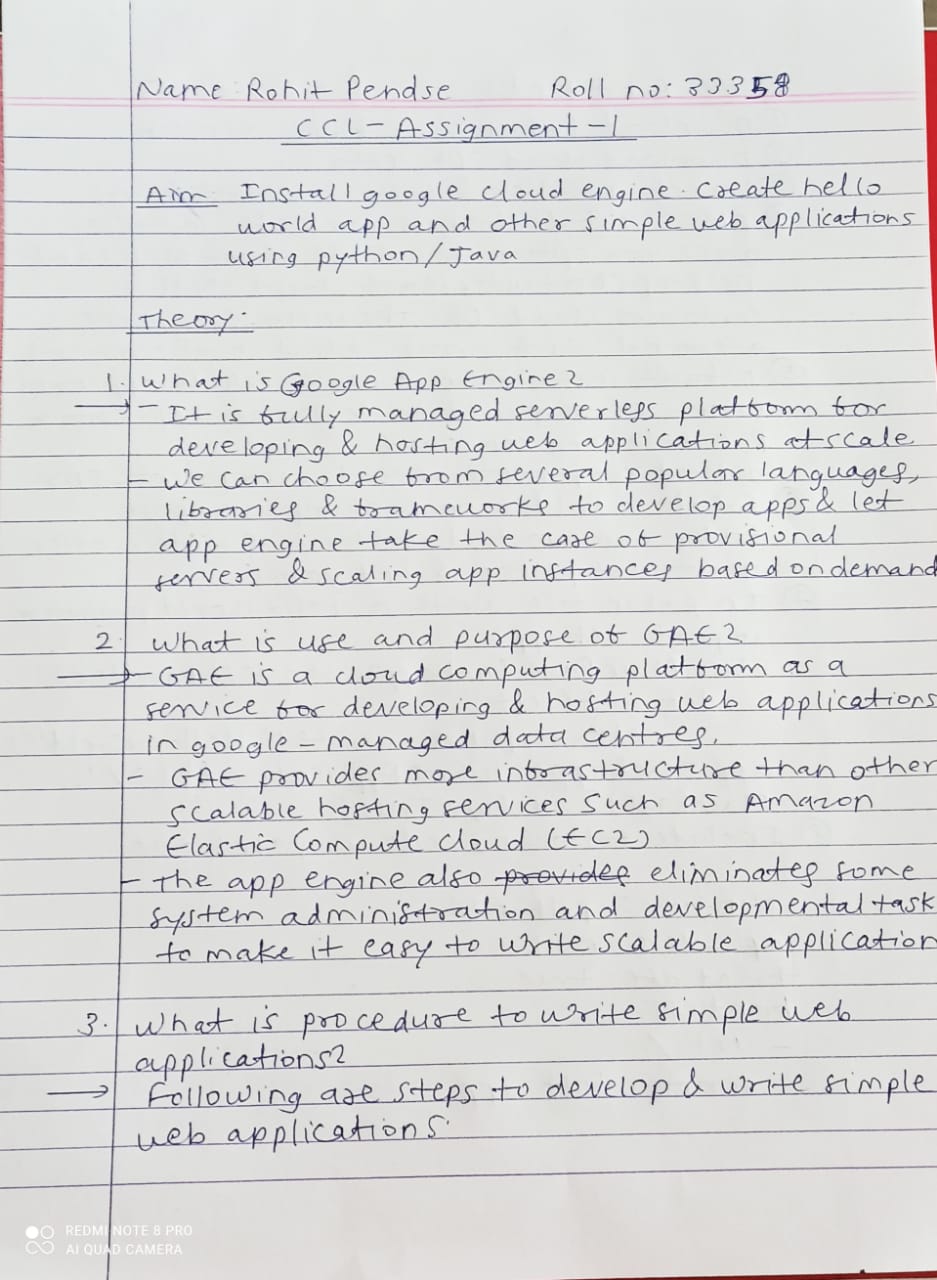 Name: Rohit Pendse Roll no: 33358
CCL - Assignment - 1
Aim Install google cloud engine. Create hello
world app and other simple web applications
using python/Java
Theory:
1. What is Google App Engine?
→ - It is fully managed serverless platform for
developing & hosting web applications at scale
- We can choose from several popular languages,
libraries & frameworks to develop apps & let
app engine take the case of provisional
servers & scaling app instances based on demand
2. What is use and purpose of GAE?
→ - GAE is a cloud computing platform as a
service for developing & hosting web applications
in google - managed data centres.
- GAE provides more infrastructure than other
scalable hosting services such as Amazon
Elastic Compute Cloud (EC2)
- The app engine also provides eliminates some
system administration and developmental task
to make it easy to write scalable application
3. What is procedure to write simple web
applications?
→ Following are steps to develop & write simple
web applications.
REDMI NOTE 8 PRO
AI QUAD CAMERA